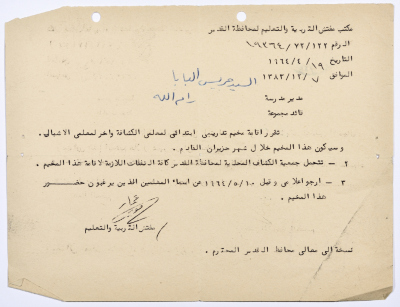 مكتب مفتش التربية والتعليم لمحافظة القدس
الرقم ٧٢/١٢٢/
التاريخ ١٩/٤/١٩٦٤
الموافق ٧/١٢/١٣٨٣
السيد جريس البابا
رام الله
مدير مدرسة
قائد مجموعة
تقرر اقامة مخيم تدريبي ابتدائي لمعلمي الكشافة واخر لمعلمي الاشبال .
وسيكون هذا المخيم خلال شهر حزيران القادم .
٢ – تتحمل جمعية الكشاف المحلية لمحافظة القدس كافة النفقات اللازمة لاقامة هذا المخيم .
٣ – ارجو اعلامي وقبل ١٠/٥/١٩٦٤ عن اسماء المعلمين الذين يرغبون حضور
هذا المخيم .
مفتش التربية والتعليم
نسخة الى معالي محافظ القدس المحترم .